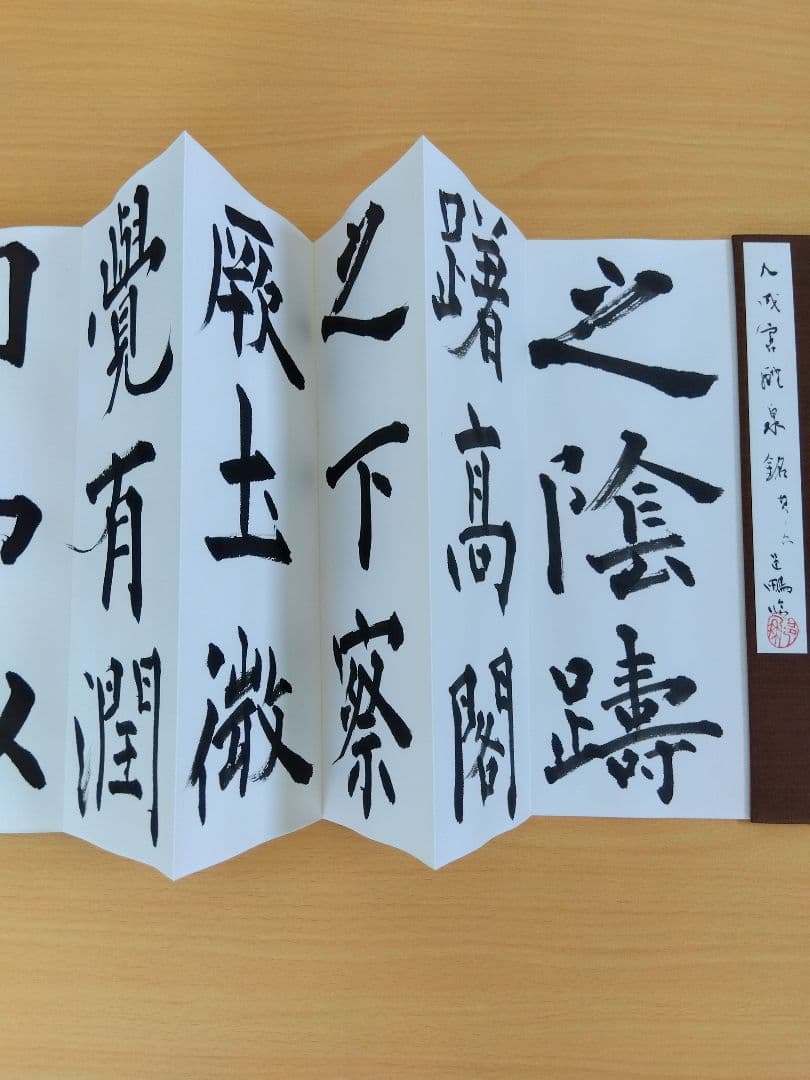 九成宮醴泉銘
之陰躊
躇高閣
之下察
厥土微
覺有潤